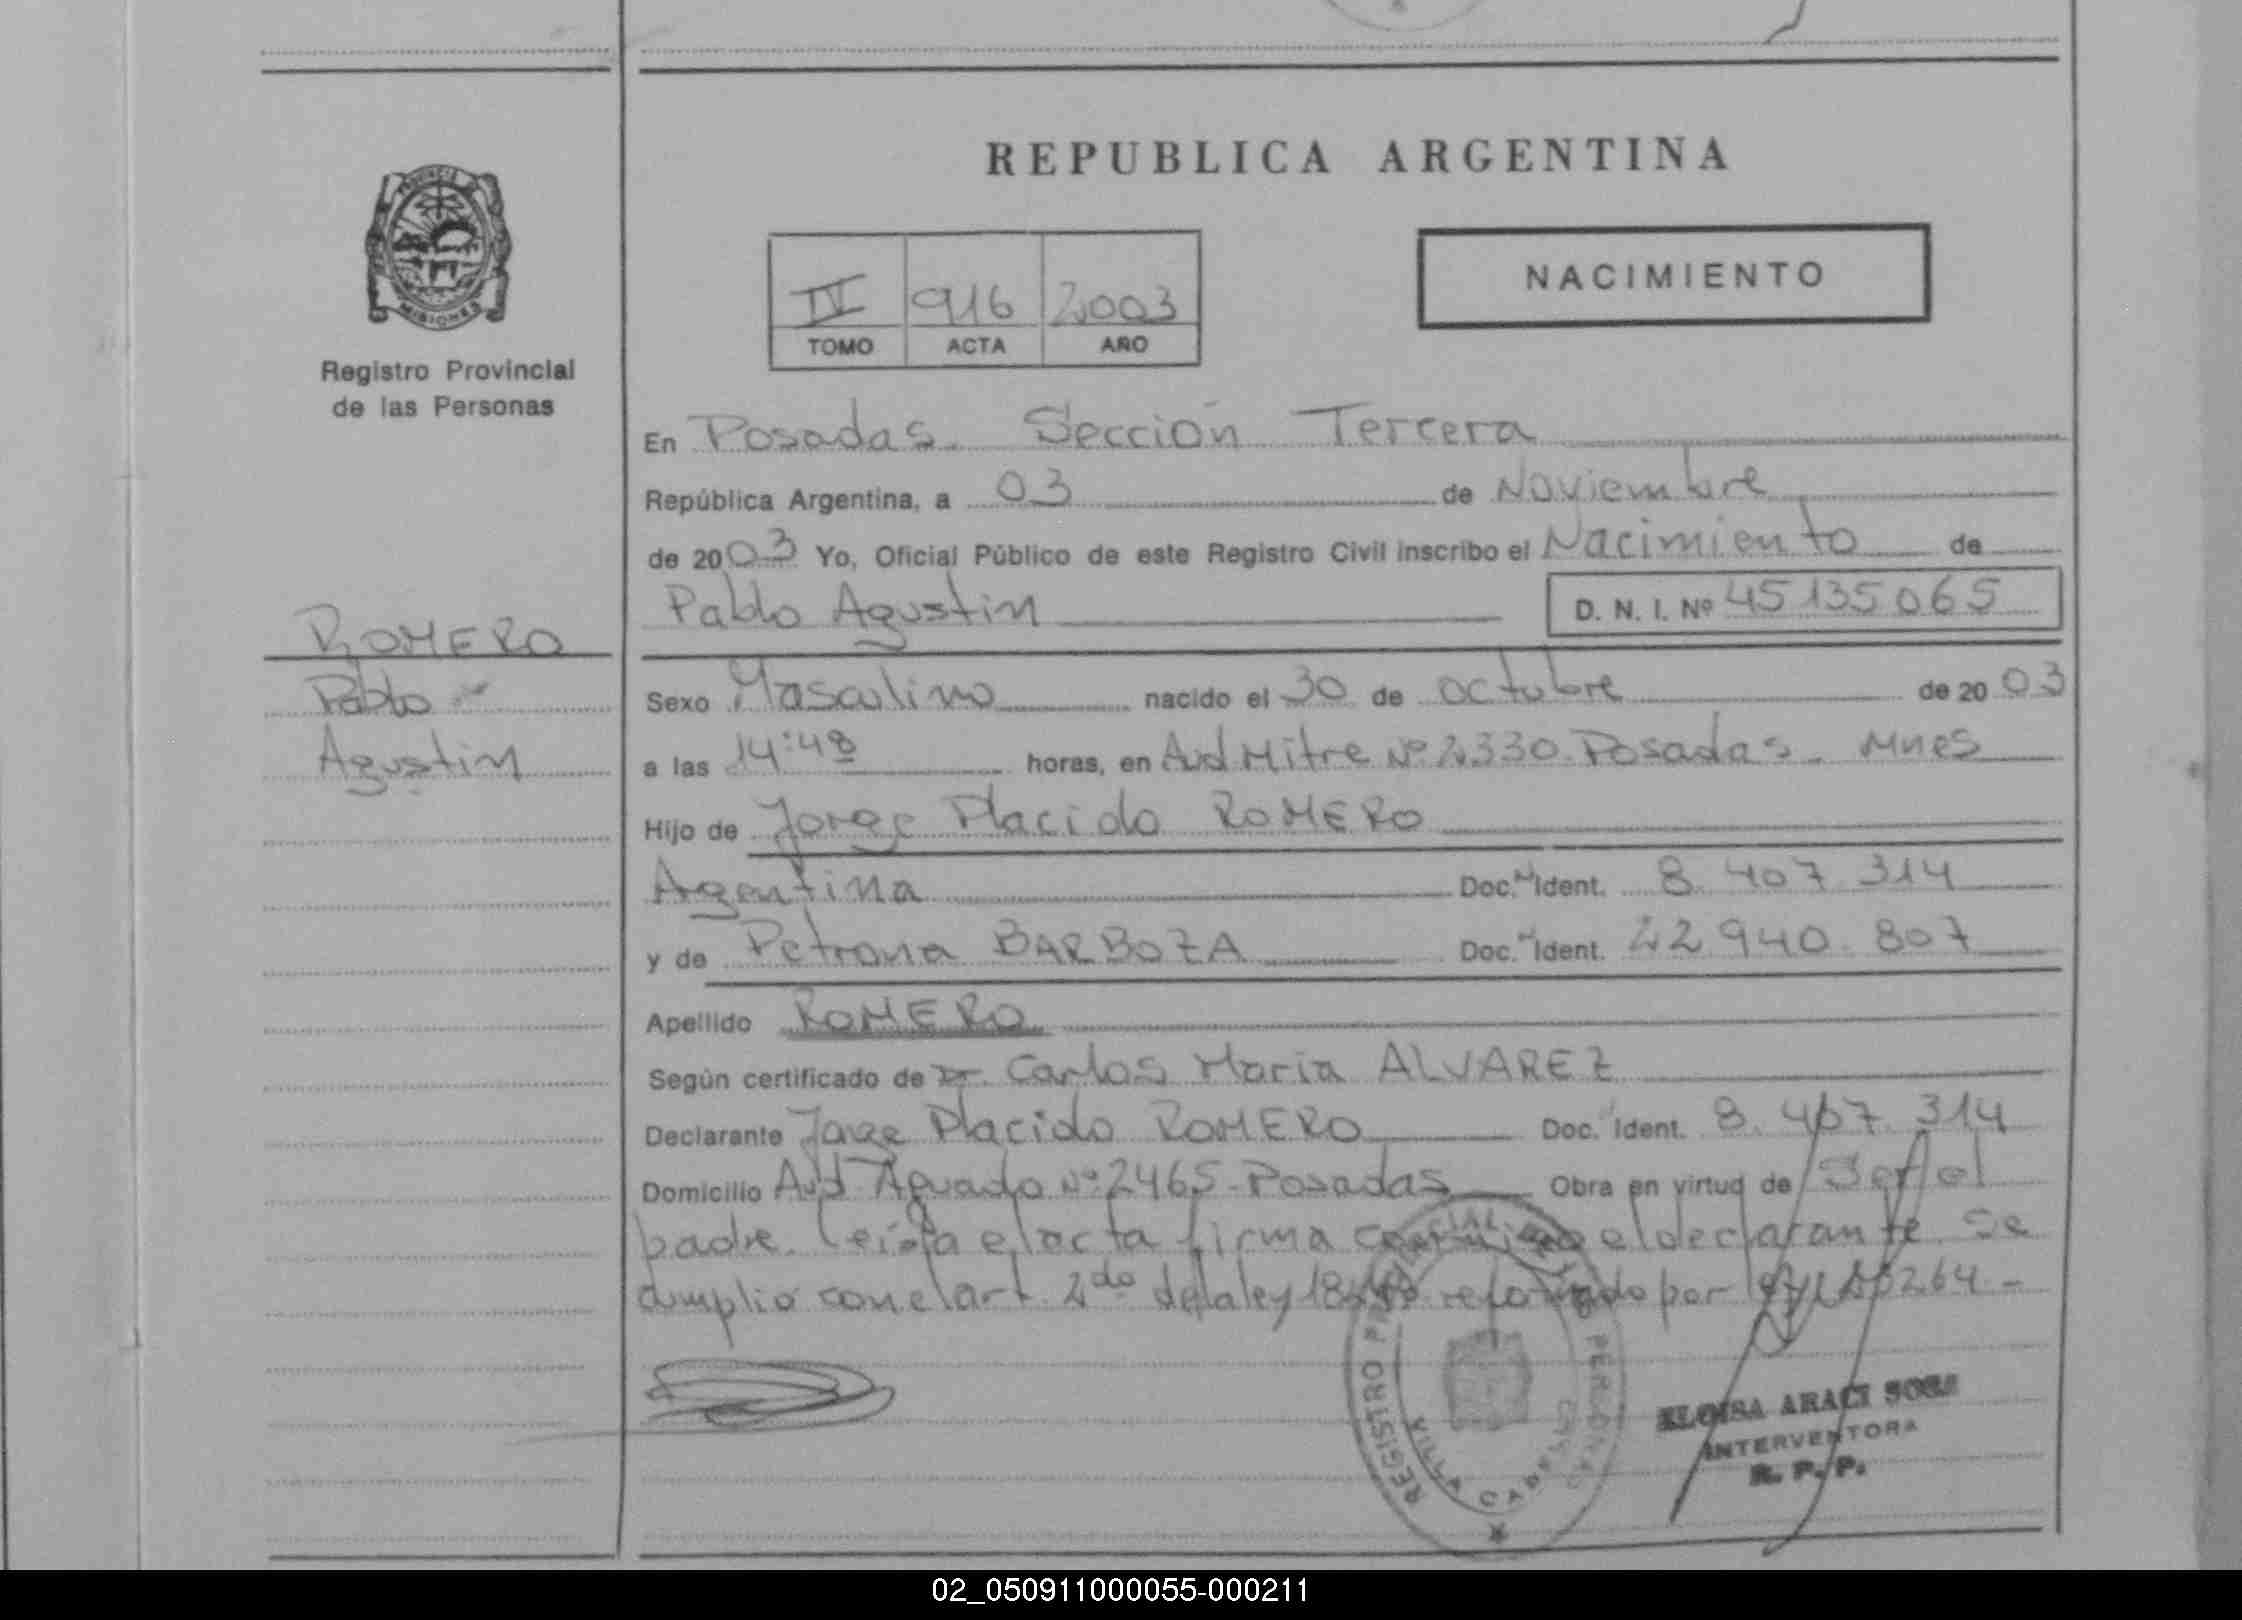 REPUBLICA ARGENTINA
NACIMIENTO
IV 916 2003
TOMO ACTA AÑO
PROVINCIA DE MISIONES
Registro Provincial
de las Personas
En Posadas. Sección Tercera
República Argentina, a 03 de Noviembre
de 2003 Yo, Oficial Público de este Registro Civil inscribo el Nacimiento de
Pablo Agustin D. N. I. Nº 45135065
ROMERO
Pablo
Agustin
Sexo Masculino nacido el 30 de octubre de 2003
a las 14:48 horas, en Avd Mitre Nº 2330. Posadas. Mnes
Hijo de Jorge Placido ROMERO
Agentina Doc. Ident. 8.407.314
y de Petrona BARBOZA Doc. Ident. 22.940.807
Apellido ROMERO
Según certificado de Dr. Carlos Maria ALVAREZ
Declarante Jorge Placido ROMERO Doc. Ident. 8.407.314
Domicilio Avd Aguado Nº 2465-Posadas Obra en virtud de Ser el
padre. leida el acta firma conmigo el declarante. Se
cumplió con el art. 2do de la ley reformado por
REGISTRO PROVINCIAL DE LAS PERSONAS
VILLA CABELLO
ELOISA ARACI SOSA
INTERVENTORA
R. P. P.
02_050911000055-000211